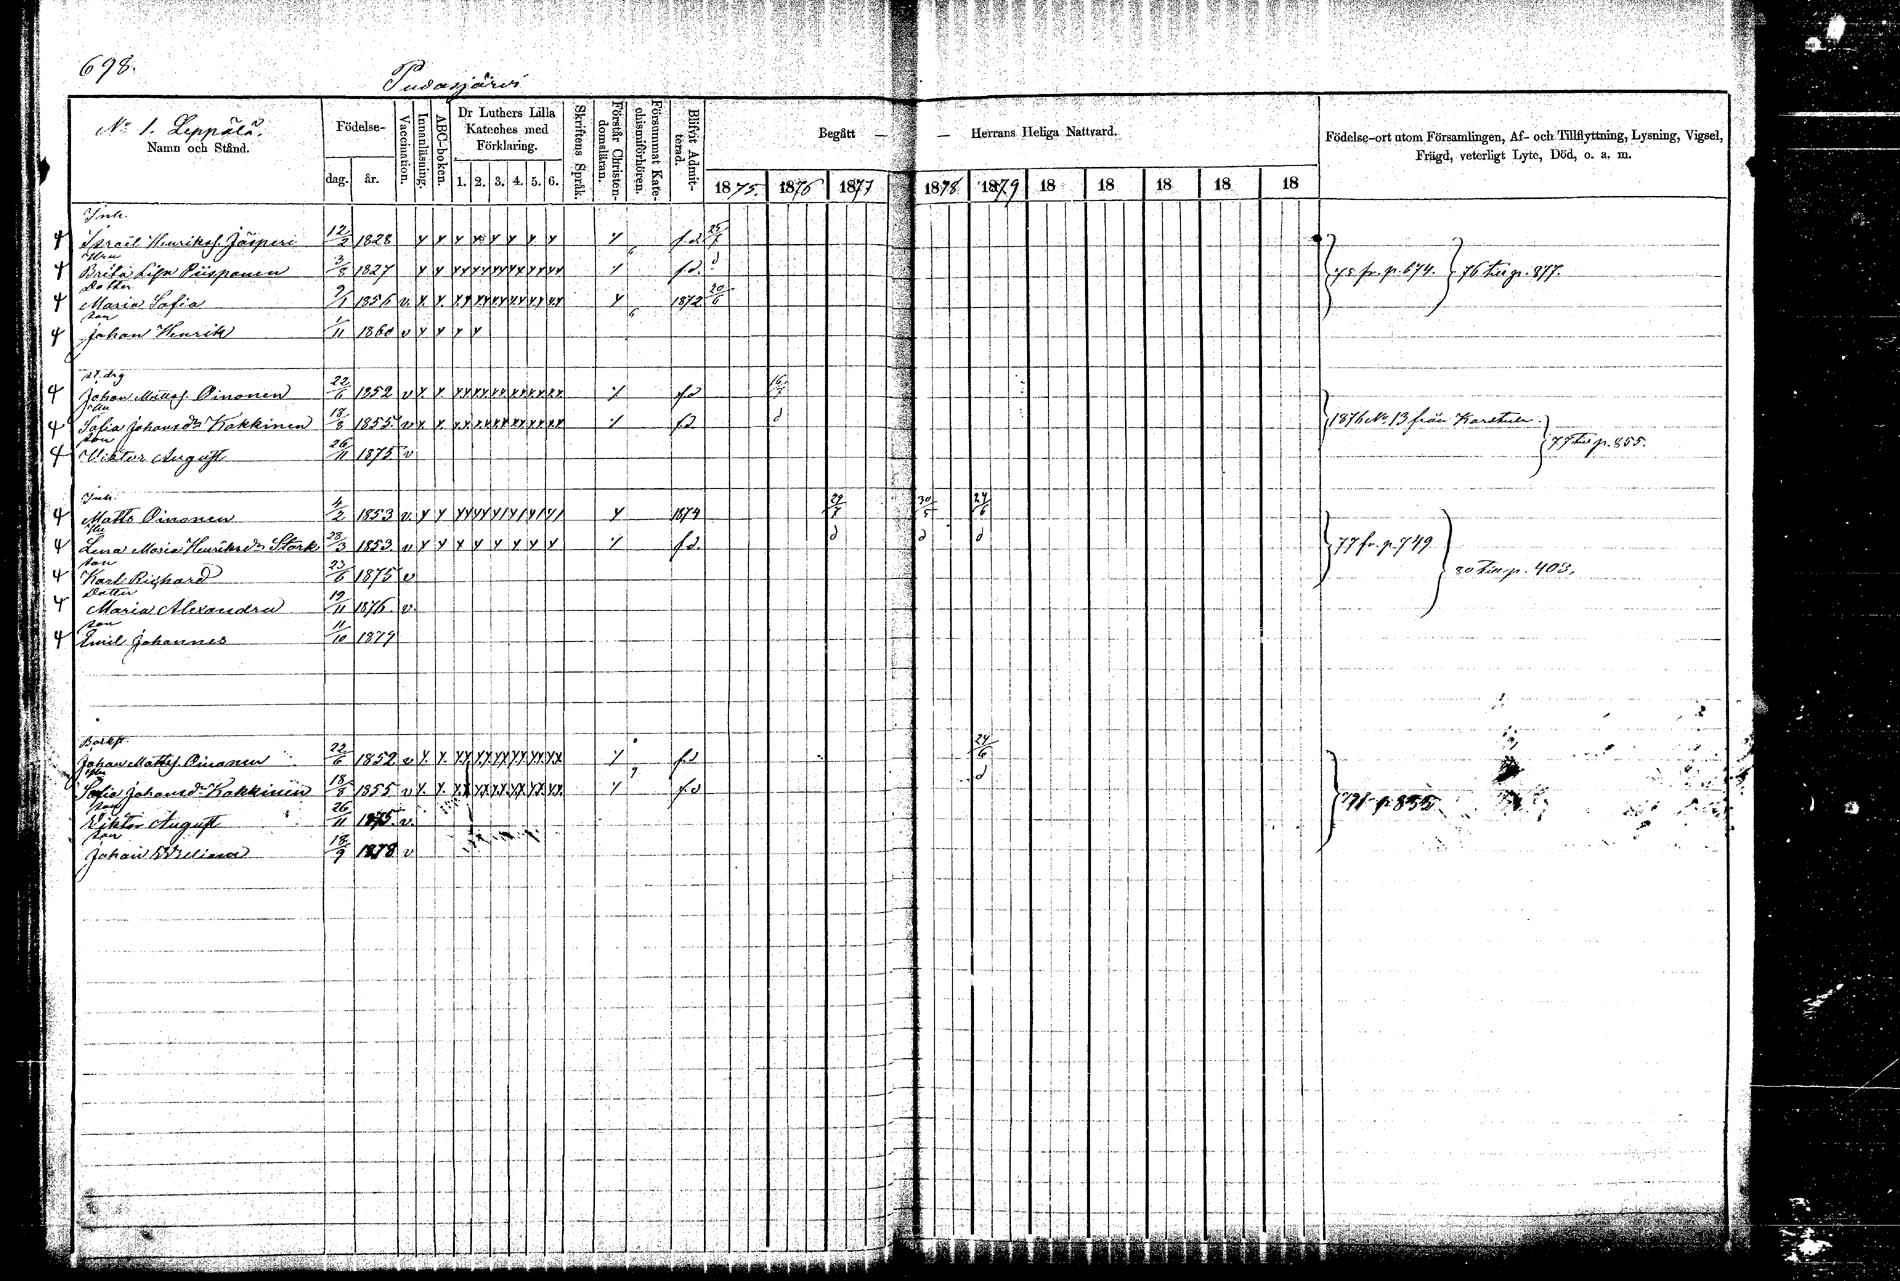 698.
Pudasjärvi
No 1. Leppälä.
Namn och Stånd.
Födelse-
dag. år.
Vaccination.
Innanläsning.
ABC-boken.
Dr Luthers Lilla Kateches med Förklaring.
1. 2. 3. 4. 5. 6.
Skriftens Språk.
Förstår Christendomsläran.
Försummat Katechismiförhören.
Blifvit Admitterad.
Begått — — Herrans Heliga Nattvard.
1875. 1876 1877 1878 1879 18 18 18 18 18
Födelse-ort utom Församlingen, Af- och Tillflyttning, Lysning, Vigsel,
Frägd, veterligt Lyte, Död, o. a. m.
Inh.
Israel Henriksf. Jäsperi 12/2 1828 f.d. 25/7
Hru
Brita Lisa Piisponen 3/8 1827 f.d. d 75 fr. p. 674. 76 till p. 877.
Dotter
Maria Sofia 9/1 1856 v. 1872 20/6
son
Johan Henrik 1/11 1860 v
Johan Mattsf. Oinonen 22/6 1852 v fd 16/7
Hu
Sofia Johansdr Kakkinen 18/8 1855. v fd d 1876 No 13 från Karstula.
son
Viktor August 26/11 1875 v 77 till p. 855.
Inh.
Matts Oinonen 4/2 1853 v. 1874 29/7 30/5 24/6
Hu
Lena Maria Henriksdr Stark 23/3 1853. v f.d. d d d 77 fr. p. 749
son
Karl Richard 23/6 1875 v 80 till p. 403.
Dotter
Maria Alexandra 19/11 1876. v.
son
Emil Johannes 11/10 1879
Johan Mattsf. Oinonen 22/6 1852 v fd 24/6
Sofia Johansdr Kakkinen 18/8 1855 v fd d
son
Viktor August 26/11 1875. v. p. 855
son
Johan 18/9 1878 v